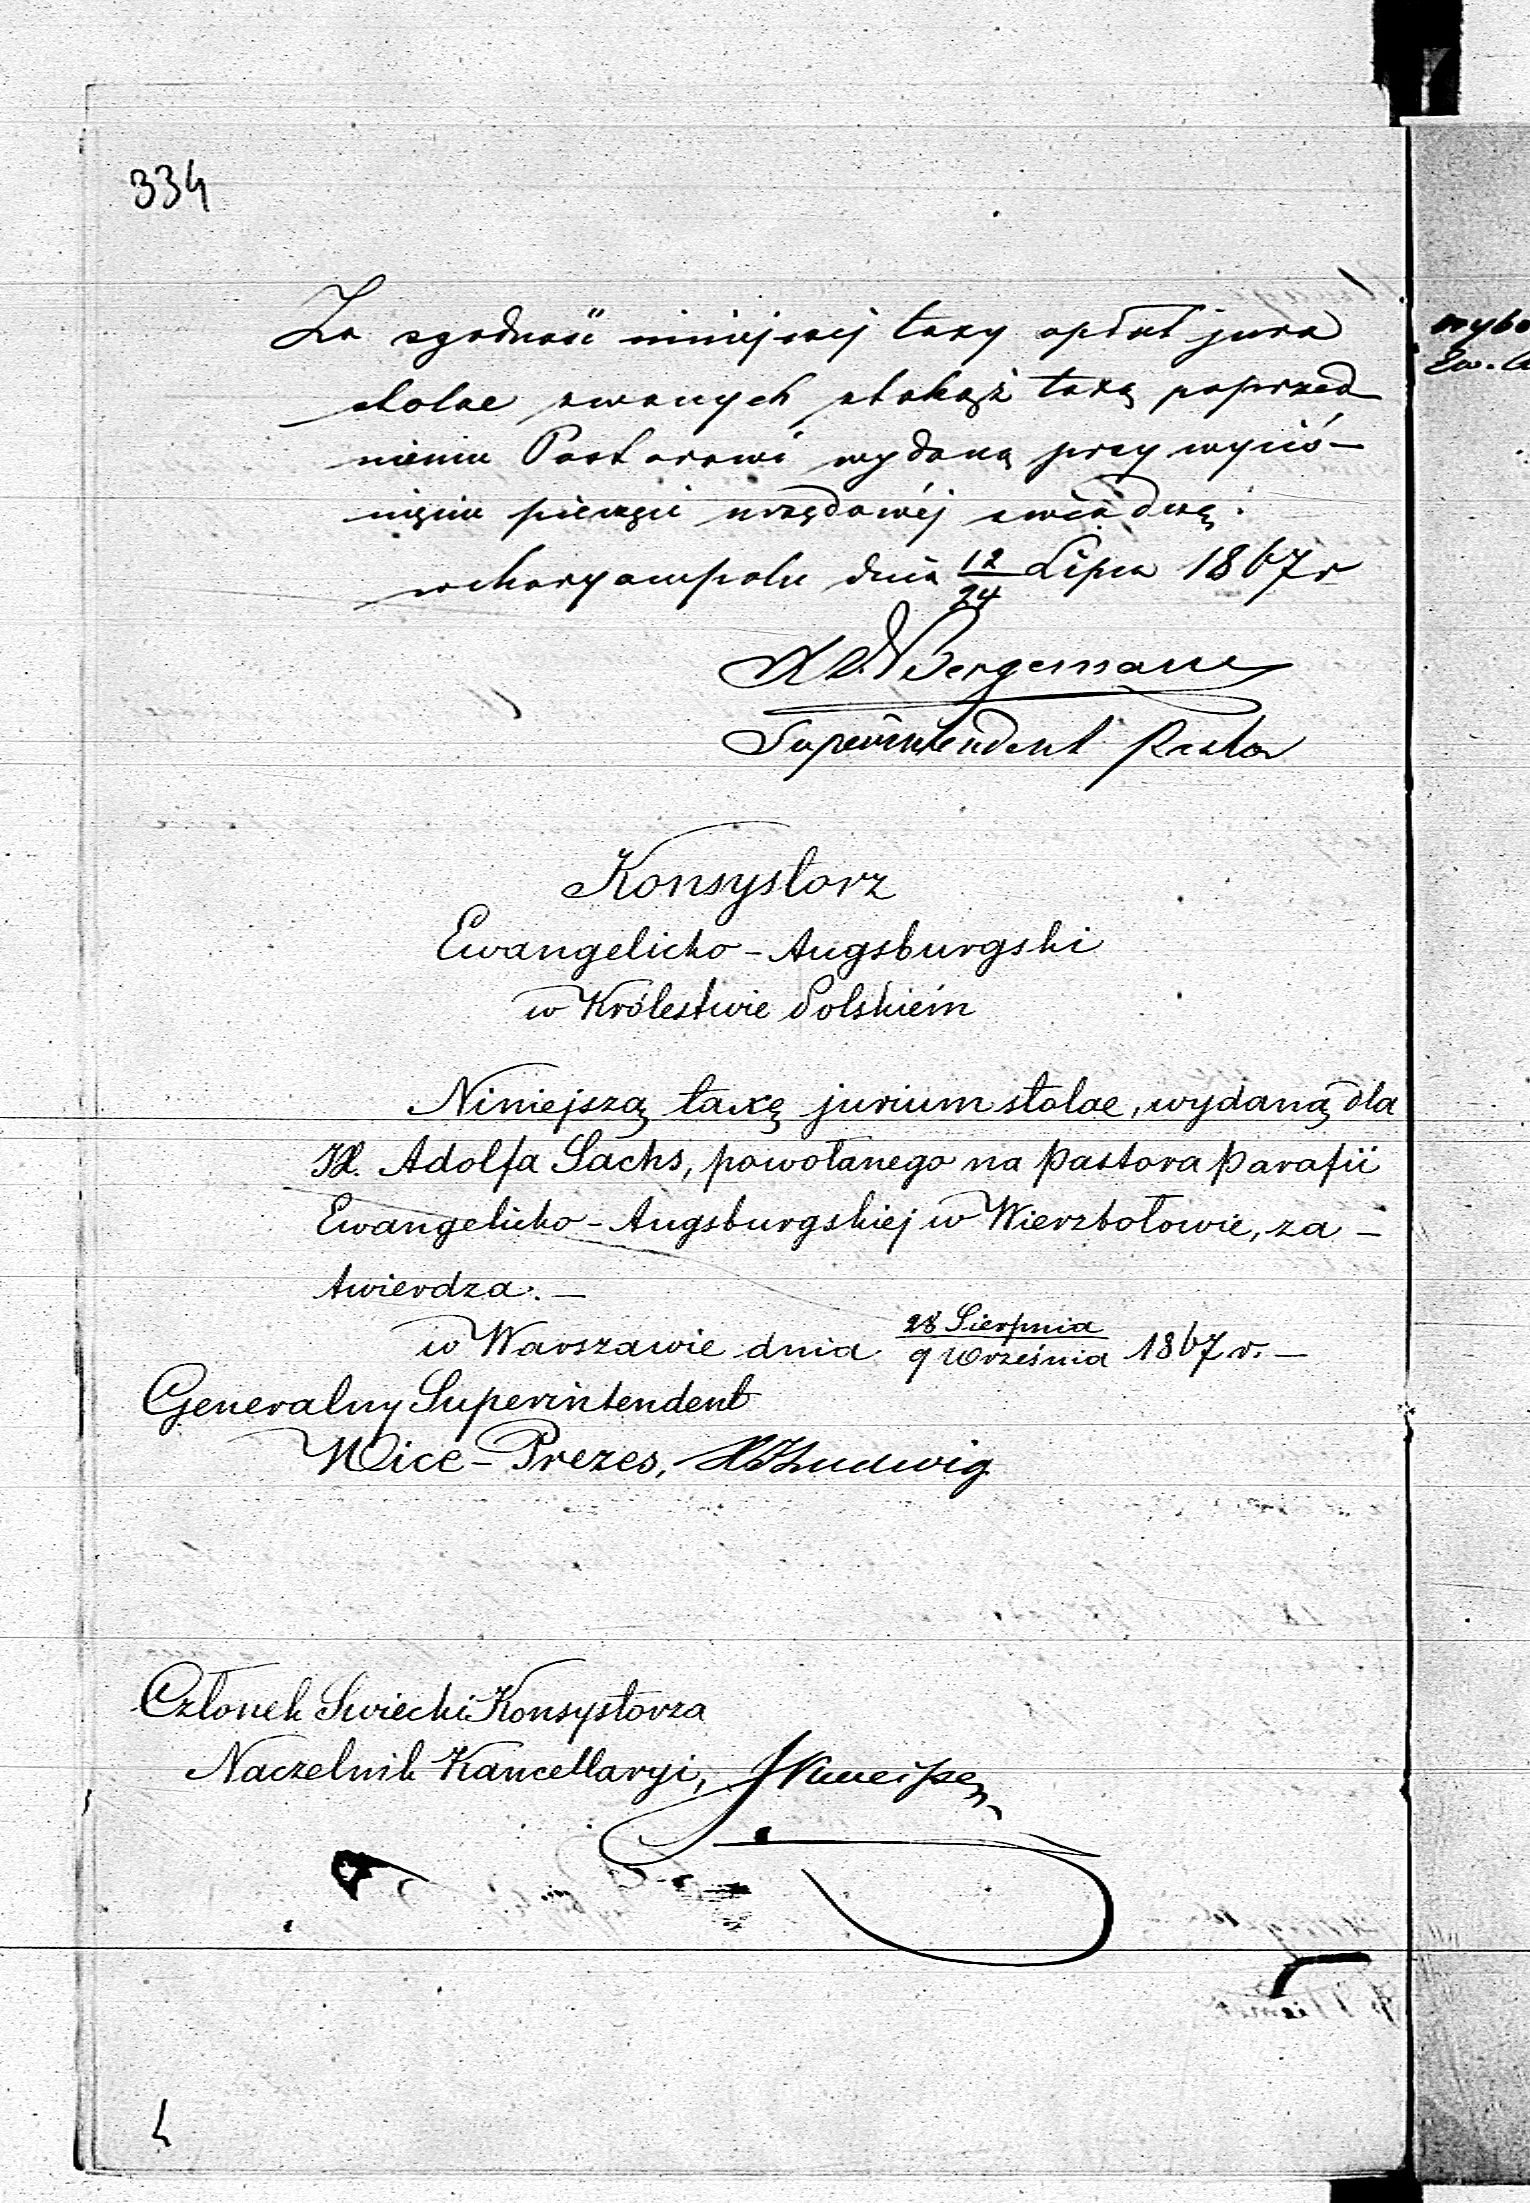 334
Za zgodność niniejszej taxy opłat jura
stolae zwanych z takąż taxą poprzed
niemu Pastorowi wydaną przy wyciś-
nięciu pieczęci urzędowéj świadczę.
w Maryampolu dnia 12/24 Lipca 1867 r
Bergemann
Superintendent Pastor
Konsystorz
Ewangelicko-Augsburgski
w Królestwie Polskiém
Niniejszą taxę jurium stolae, wydaną dla
JX. Adolfa Sachs, powołanego na Pastora Parafii
Ewangelicko-Augsburgskiej w Wierzbołowie, za-
twierdza. —
w Warszawie dnia 28 Sierpnia/9 Września 1867 r. —
Generalny Superintendent
Wice-Prezes, Ludwig
Członek Swiecki Konsystorza
Naczelnik Kancellaryi,